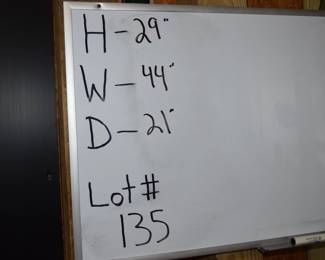 H - 29"
W - 44"
D - 21"
Lot #
135